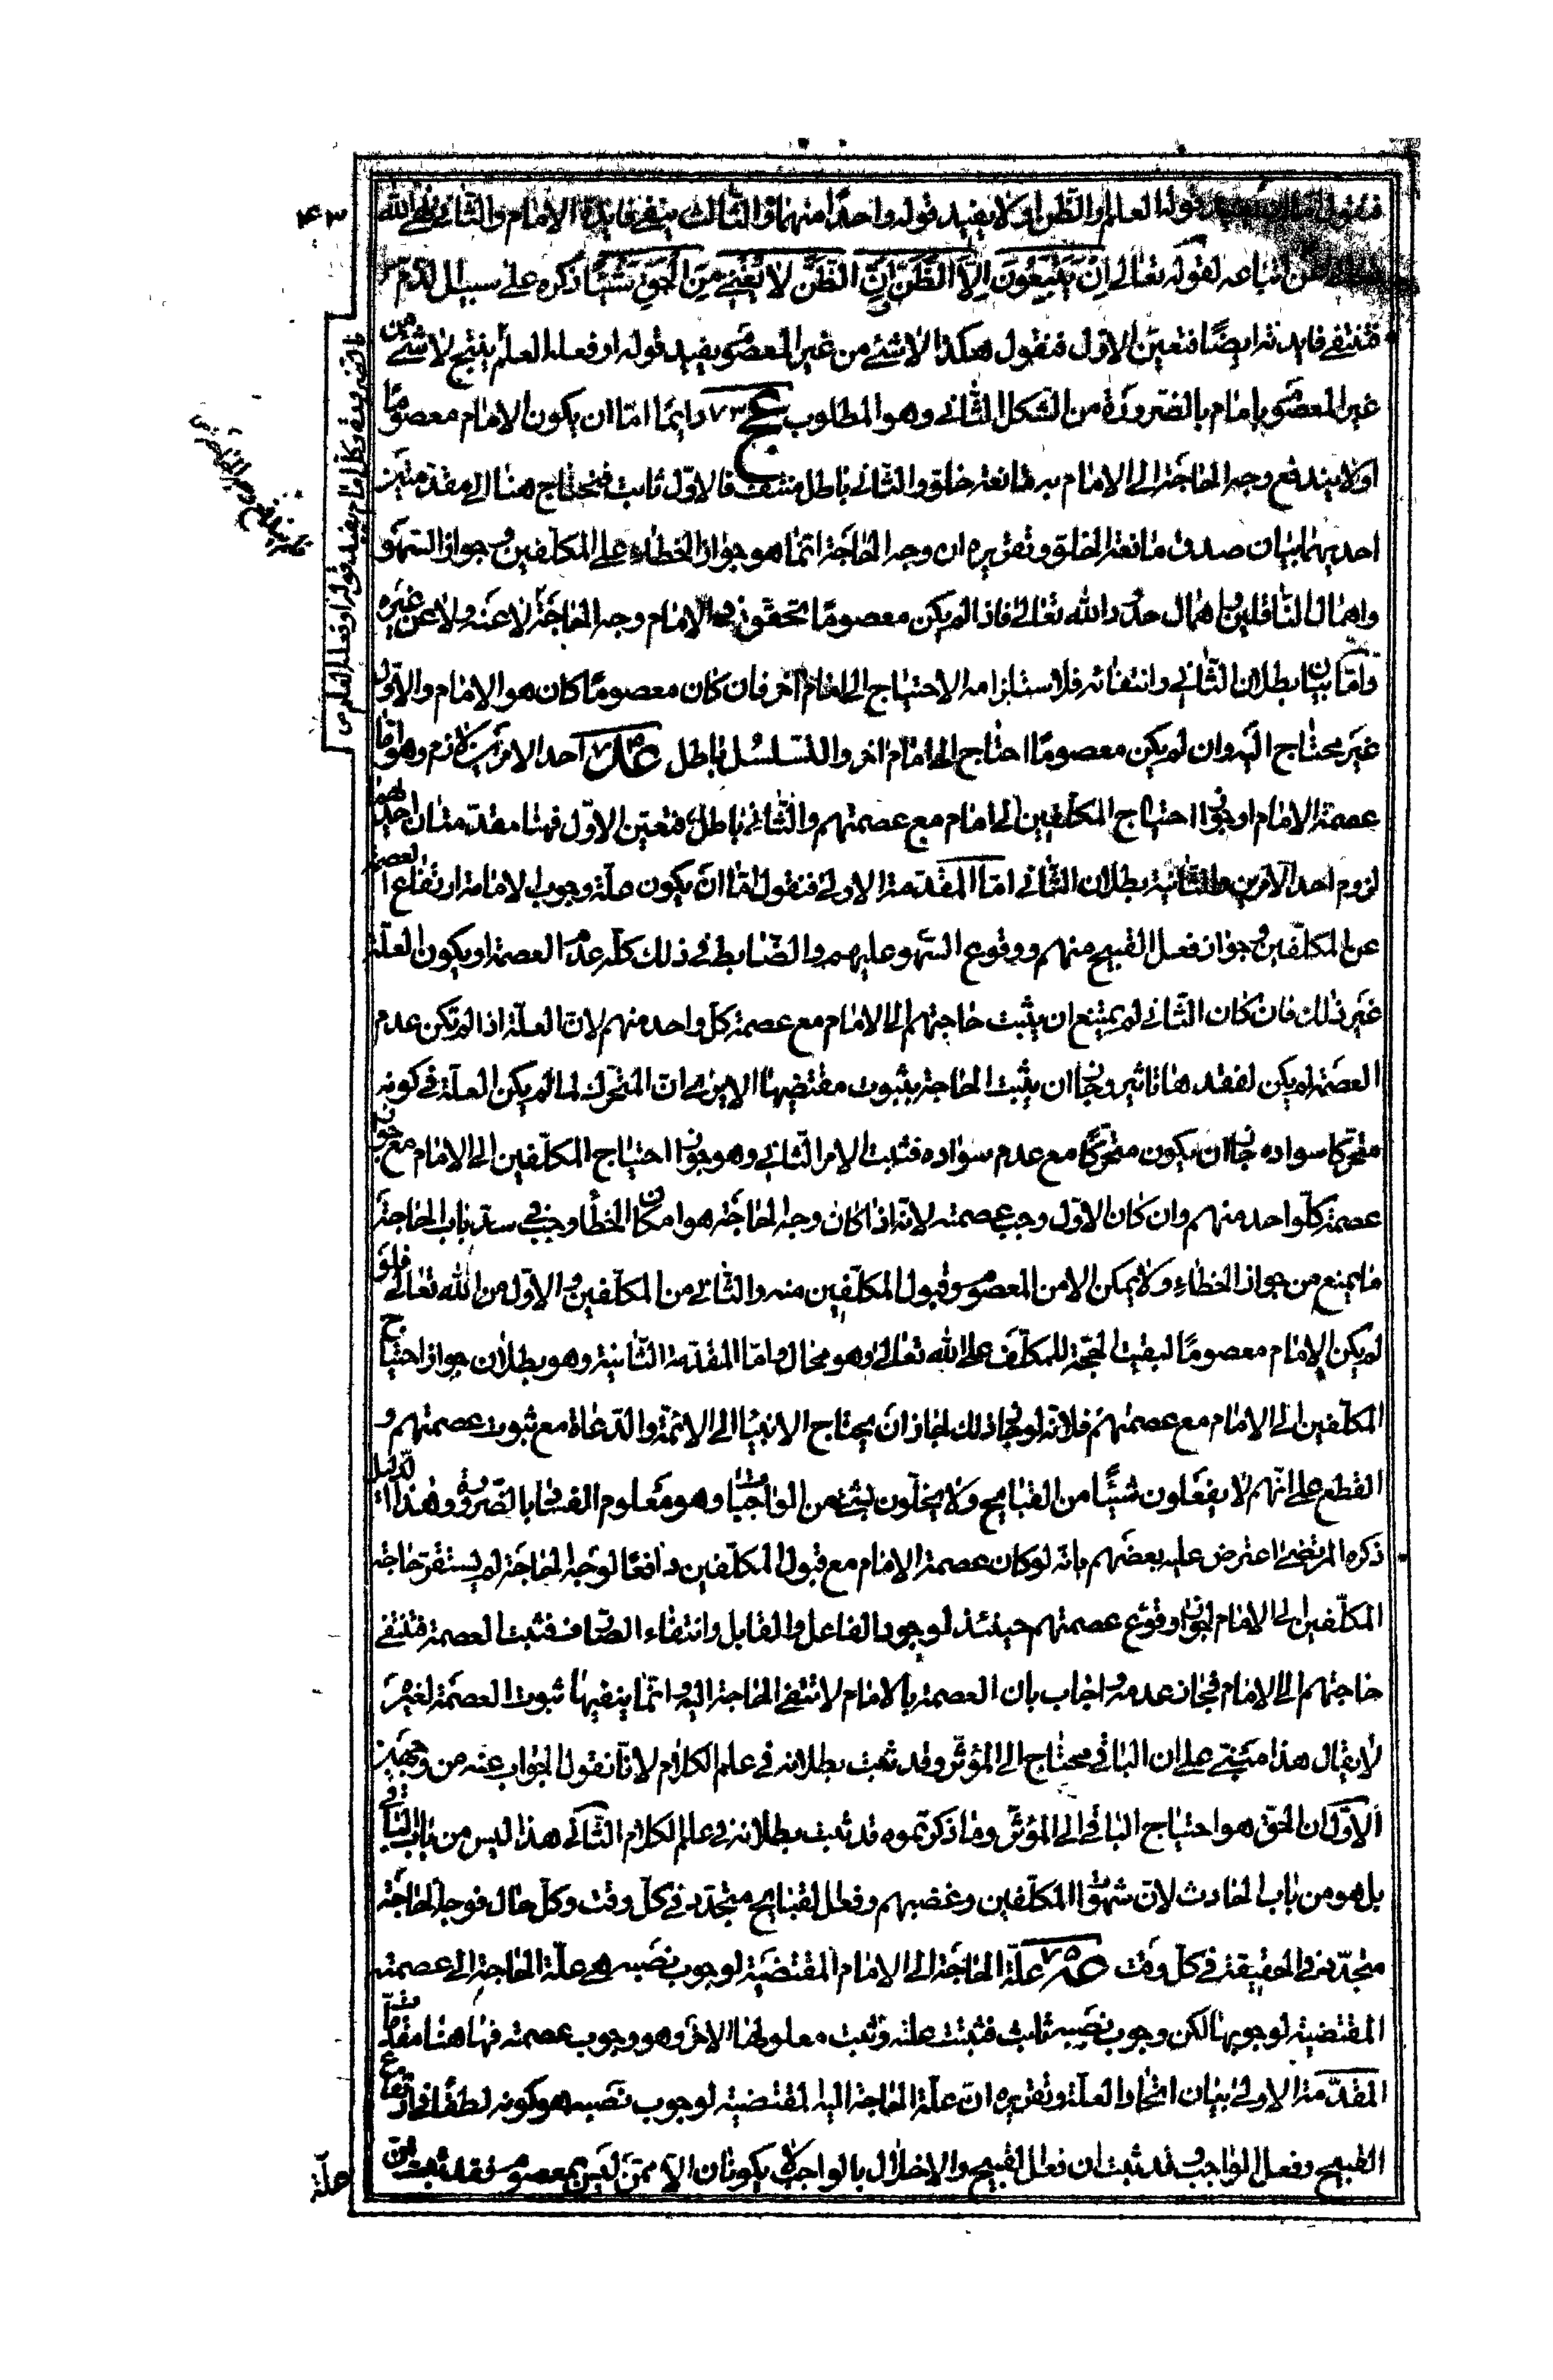 فنقول قوله العلم والظن او لا يفيد قوله واحدا منهما والثالث ينفي فايدة الامام والثاني نهى الله
اتباعه لقوله تعالى اِنْ يَتَّبِعُونَ اِلَّا الظَّنَّ اِنَّ الظَّنَّ لا يُغْنِي مِنَ الْحَقِّ شَيْئًا ذكره على سبيل الذم
فتنتفي فايدته ايضًا فتعين الاول فنقول هكذا لا شئ من غير المعصوم يفيد قوله او فعله العلم ينتج لا شئ من
غير المعصوم بامام بالضرورة من الشكل الثاني وهو المطلوب عج ٧٣ دايمًا امّا ان يكون الامام معصومًا
او لا يندفع وجه الحاجة الى الامام به مانعة خلو والثاني باطل منتف فالاول ثابت فيحتاج هنا الى مقدمتين
احديهما بيان صدق مانعة الخلو وتقريره ان وجه الحاجة انما هو جواز الخطاء على المكلفين وجواز السهو
واهمال الناقلين واهمال حدود الله تعالى فاذا لم يكن معصومًا تحقق في الامام وجه الحاجة لا عنه ولا عن غيره
وامّا بيان بطلان الثاني وانتفائه فلاستلزامه الاحتياج الى امام آخر فان كان معصومًا كان هو الامام والاول
غير محتاج اليه وان لم يكن معصومًا احتاج الى امام اخر والتسلسل باطل عد ٧٤ احد الامرين لازم وهو امّا
عصمة الامام او جواز احتياج المكلفين الى امام مع عصمتهم والثاني باطل فتعين الاول فهنا مقدمتان احديهما
لزوم احد الامرين والثانية بطلان الثاني امّا المقدمة الاولى فنقول امّا ان يكون علة وجوب الامامة ارتفاع العصمة
عن المكلفين وجواز فعل القبيح منهم ووقوع السهو عليهم والضابط في ذلك كله عدم العصمة او يكون العلة
غير ذلك فان كان الثاني لم يمتنع ان يثبت حاجتهم الى الامام مع عصمة كل واحد منهم لان العلة اذا لم تكن عدم
العصمة لم يكن لفقدها تاثير وجاز ان يثبت الحاجة بثبوت مقتضيها الا يرى ان المتحرك لما لم يكن العلة في كونه
متحركا سواده جاز ان يكون متحركًا مع عدم سواده فثبت الامر الثاني وهو جواز احتياج المكلفين الى الامام مع جواز
عصمة كل واحد منهم وان كان الاول وجب عصمته لانه اذا كان وجه الحاجة هو امكان الخطأ وجب في سد باب الحاجة
ما يمنع من جواز الخطاء ولا يمكن الا من المعصوم وقبول المكلفين منه والثاني من المكلفين والاول من الله تعالى فلو
لم يكن الامام معصومًا لبقيت الحجة للمكلف على الله تعالى وهو محال وامّا المقدمة الثانية وهو بطلان جواز احتياج
المكلفين الى الامام مع عصمتهم فلانه لو جاز ذلك لجاز ان يحتاج الانبيا الى الائمة والدعاة مع ثبوت عصمتهم و
القطع على انهم لا يفعلون شيئًا من القبايح ولا يخلّون بشئ من الواجبات وهو معلوم الفساد بالضرورة وهذا الدليل
ذكره المرتضى اعترض عليه بعضهم بانه لو كان عصمة الامام مع قبول المكلفين دافعًا لوجه الحاجة لم يستقر حاجة
المكلفين الى الامام لجواز وقوع عصمتهم حينئذ لوجود الفاعل والقابل وانتفاء الصارف فثبت العصمة فتنتفي
حاجتهم الى الامام فجاز عدمه واجاب بان العصمة بالامام لا تنتفي الحاجة اليه وانما ينفيها ثبوت العصمة لغيره
لا يقال هذا مبني على ان الباقي محتاج الى المؤثر وقد ثبت بطلانه في علم الكلام لانا نقول الجواب عنه من وجهين
الاول ان الحق هو احتياج الباقي الى المؤثر وما ذكرتموه قد ثبت بطلانه في علم الكلام الثاني هذا ليس من باب الباقي
بل هو من باب الحادث لان شهوات المكلفين وغضبهم وفعل القبايح متجدد في كل وقت وكل حال فوجه الحاجة
متجدد في الحقيقة في كل وقت عه ٧٥ علة الحاجة الى الامام المقتضية لوجوب نصبه هي علة الحاجة الى عصمته
المقتضية لوجوبها لكن وجوب نصبه ثابت فثبتت علته وثبت معلولها الاخر وهو وجوب عصمته فهاهنا مقدمات
المقدمة الاولى بيان اتحاد العلة وتقريره ان علة الحاجة اليه المقتضية لوجوب نصبه هو كونه لطفًا في ارتفاع
القبيح وفعل الواجب وقد ثبت ان فعل القبيح والاخلال بالواجب لا يكونان الا ممن ليس بمعصوم فقد ثبت ان
علة